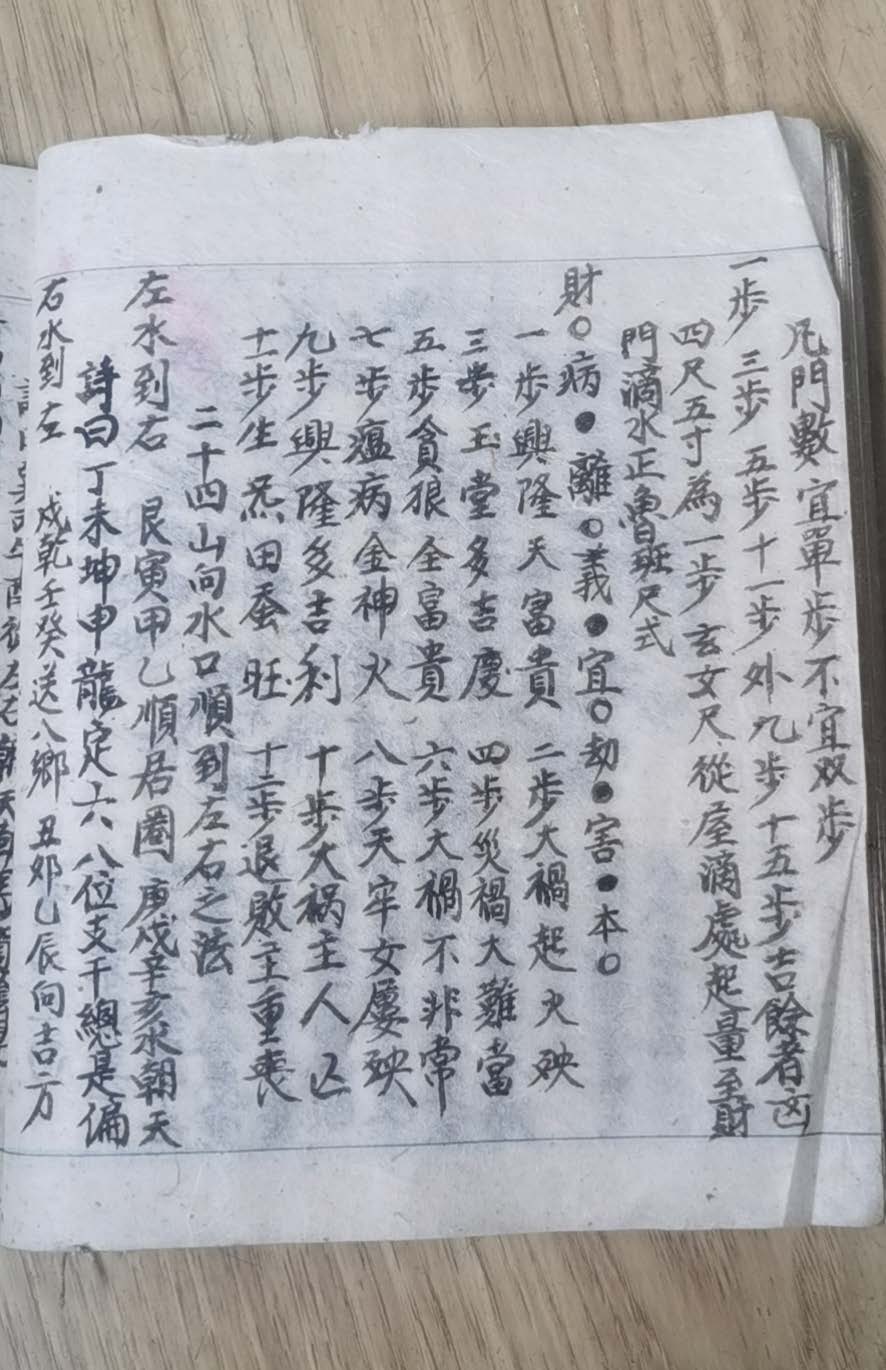 凡門數宜單步不宜双步
一步 三步 五步 十一步外九步十五步吉餘者凶
四尺五寸為一步玄女尺從屋滴處起量至財
門滴水正魯班尺式
財○病●離○義●宜○劫●害●本○
一步興隆天富貴 二步大禍起火殃
三步玉堂多吉慶 四步災禍大難當
五步貪狼全富貴 六步大禍不非常
七步瘟病金神火 八步天牢女屢殃
九步興隆多吉利 十步大祸主人亡
十一步生炁田蚕旺 十二步退敗主重喪
二十四山向水口順到左右之法
左水到右 艮寅甲乙順居圈 庚戌辛亥水朝天
詩曰丁未坤申龍定六八位支干總是偏
右水到左 戍乾壬癸送八鄉 丑夘乙辰向吉方